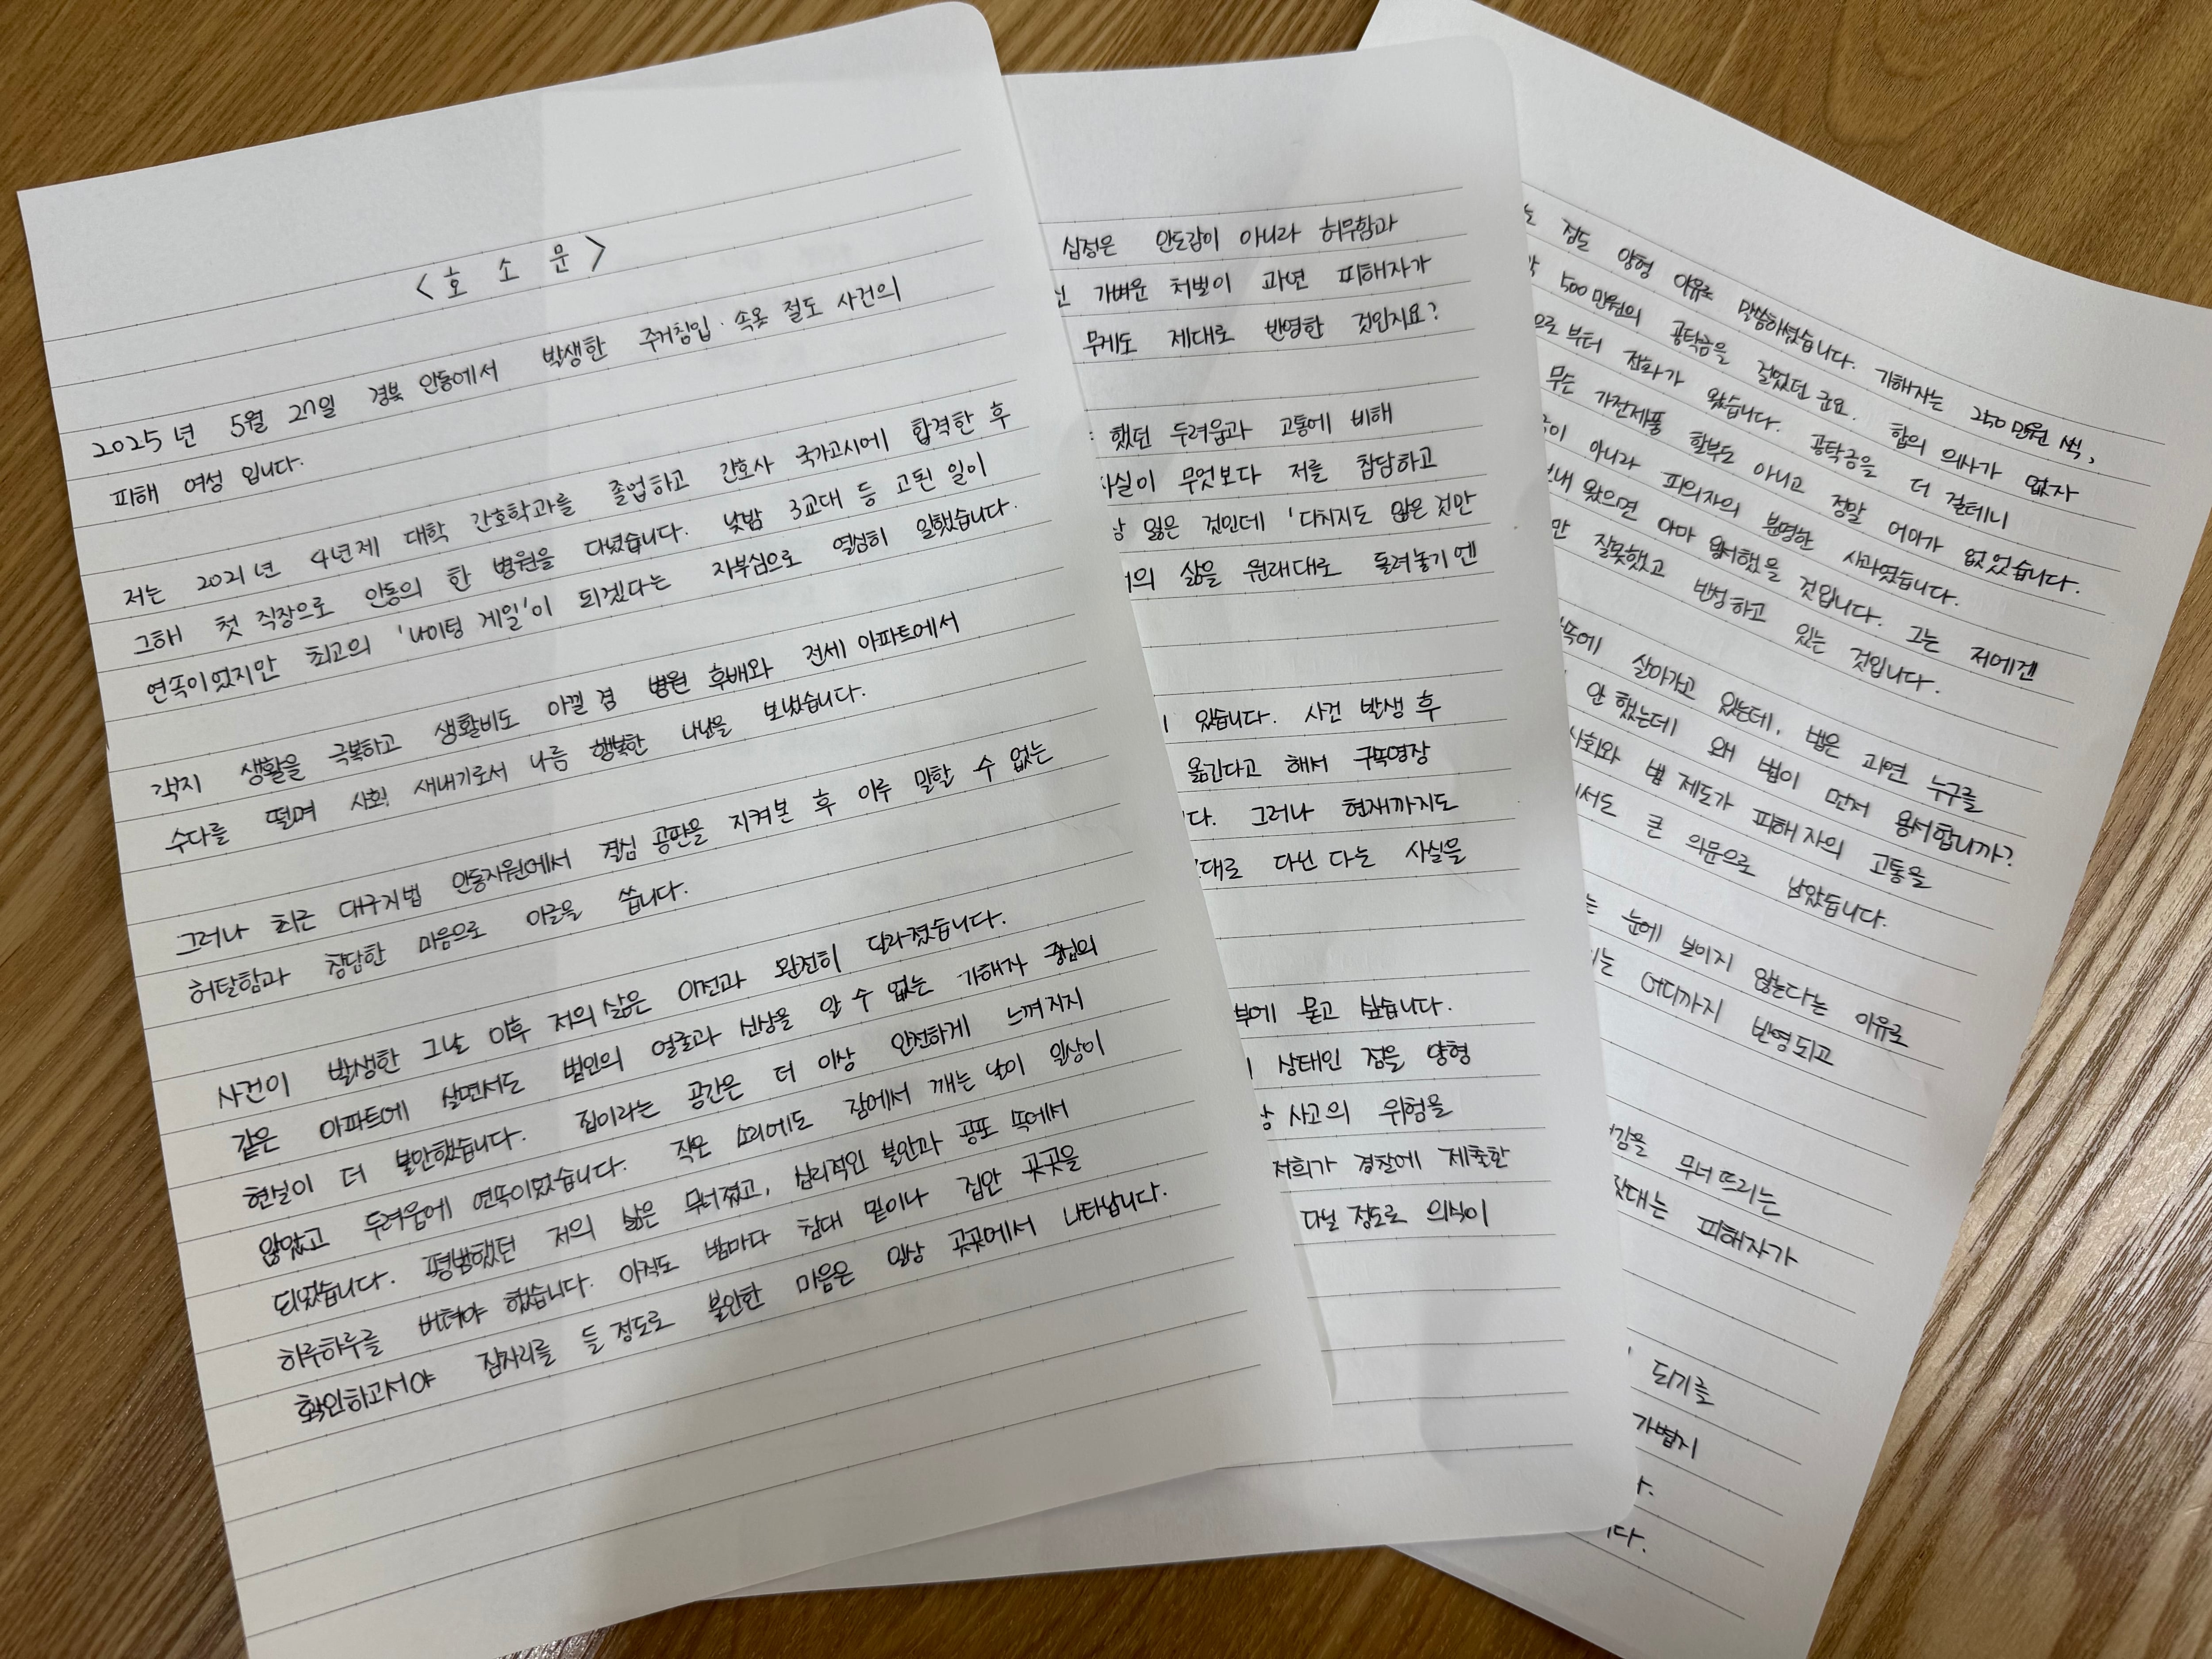 < 호 소 문 >
2025년 5월 27일 경북 안동에서 발생한 주거침입·속옷 절도 사건의
피해 여성 입니다.
저는 2021년 4년제 대학 간호학과를 졸업하고 간호사 국가고시에 합격한 후
그해 첫 직장으로 안동의 한 병원을 다녔습니다. 낮밤 3교대 등 고된 일이
연속이었지만 최고의 '나이팅 게일'이 되겠다는 자부심으로 열심히 일했습니다.
객지 생활을 극복하고 생활비도 아낄 겸 병원 후배와 전세 아파트에서
수다를 떨며 사회 새내기로서 나름 행복한 나날을 보냈습니다.
그러나 최근 대구지법 안동지원에서 결심 공판을 지켜본 후 이루 말할 수 없는
허탈함과 참담한 마음으로 이글을 씁니다.
사건이 발생한 그날 이후 저의 삶은 이전과 완전히 달라졌습니다.
같은 아파트에 살면서도 범인의 얼굴과 신상을 알 수 없는 가해자 중심의
현실이 더 불안했습니다. 집이라는 공간은 더 이상 안전하게 느껴지지
않았고 두려움에 연속이었습니다. 작은 소리에도 잠에서 깨는 날이 일상이
되었습니다. 평범했던 저의 삶은 무너졌고, 심리적인 불안과 공포 속에서
하루하루를 버텨야 했습니다. 아직도 밤마다 침대 밑이나 집안 곳곳을
확인하고서야 잠자리를 들 정도로 불안한 마음은 일상 곳곳에서 나타납니다.
심정은 안도감이 아니라 허무함과
가벼운 처벌이 과연 피해자가
무게도 제대로 반영한 것인지요?
했던 두려움과 고통에 비해
사실이 무엇보다 저를 참담하고
잃은 것인데 '다치지도 않은 것만
의 삶을 원래대로 돌려놓기엔
있습니다. 사건 발생 후
옮긴다고 해서 구속영장
다. 그러나 현재까지도
대로 다닌다는 사실을
부에 묻고 싶습니다.
상태인 점을 양형
사고의 위험을
저희가 경찰에 제출한
다닐 정도로 의식이
정도 양형 이유로 말씀하셨습니다. 가해자는 250만원 씩,
500만원의 공탁금을 걸었던 군요. 합의 의사가 없자
으로 부터 전화가 왔습니다. 공탁금을 더 걸테니
무슨 가전제품 할부도 아니고 정말 어이가 없었습니다.
이 아니라 피의자의 분명한 사과였습니다.
보내 왔으면 아마 용서했을 것입니다. 그는 저에겐
만 잘못했고 반성하고 있는 것입니다.
속에 살아가고 있는데, 법은 과연 누구를
안 했는데 왜 법이 먼저 용서합니까?
사회와 법 제도가 피해자의 고통을
서도 큰 의문으로 남았습니다.
눈에 보이지 않는다는 이유로
는 어디까지 반영되고
감을 무너뜨리는
잣대는 피해자가
되기를
가볍지
다.